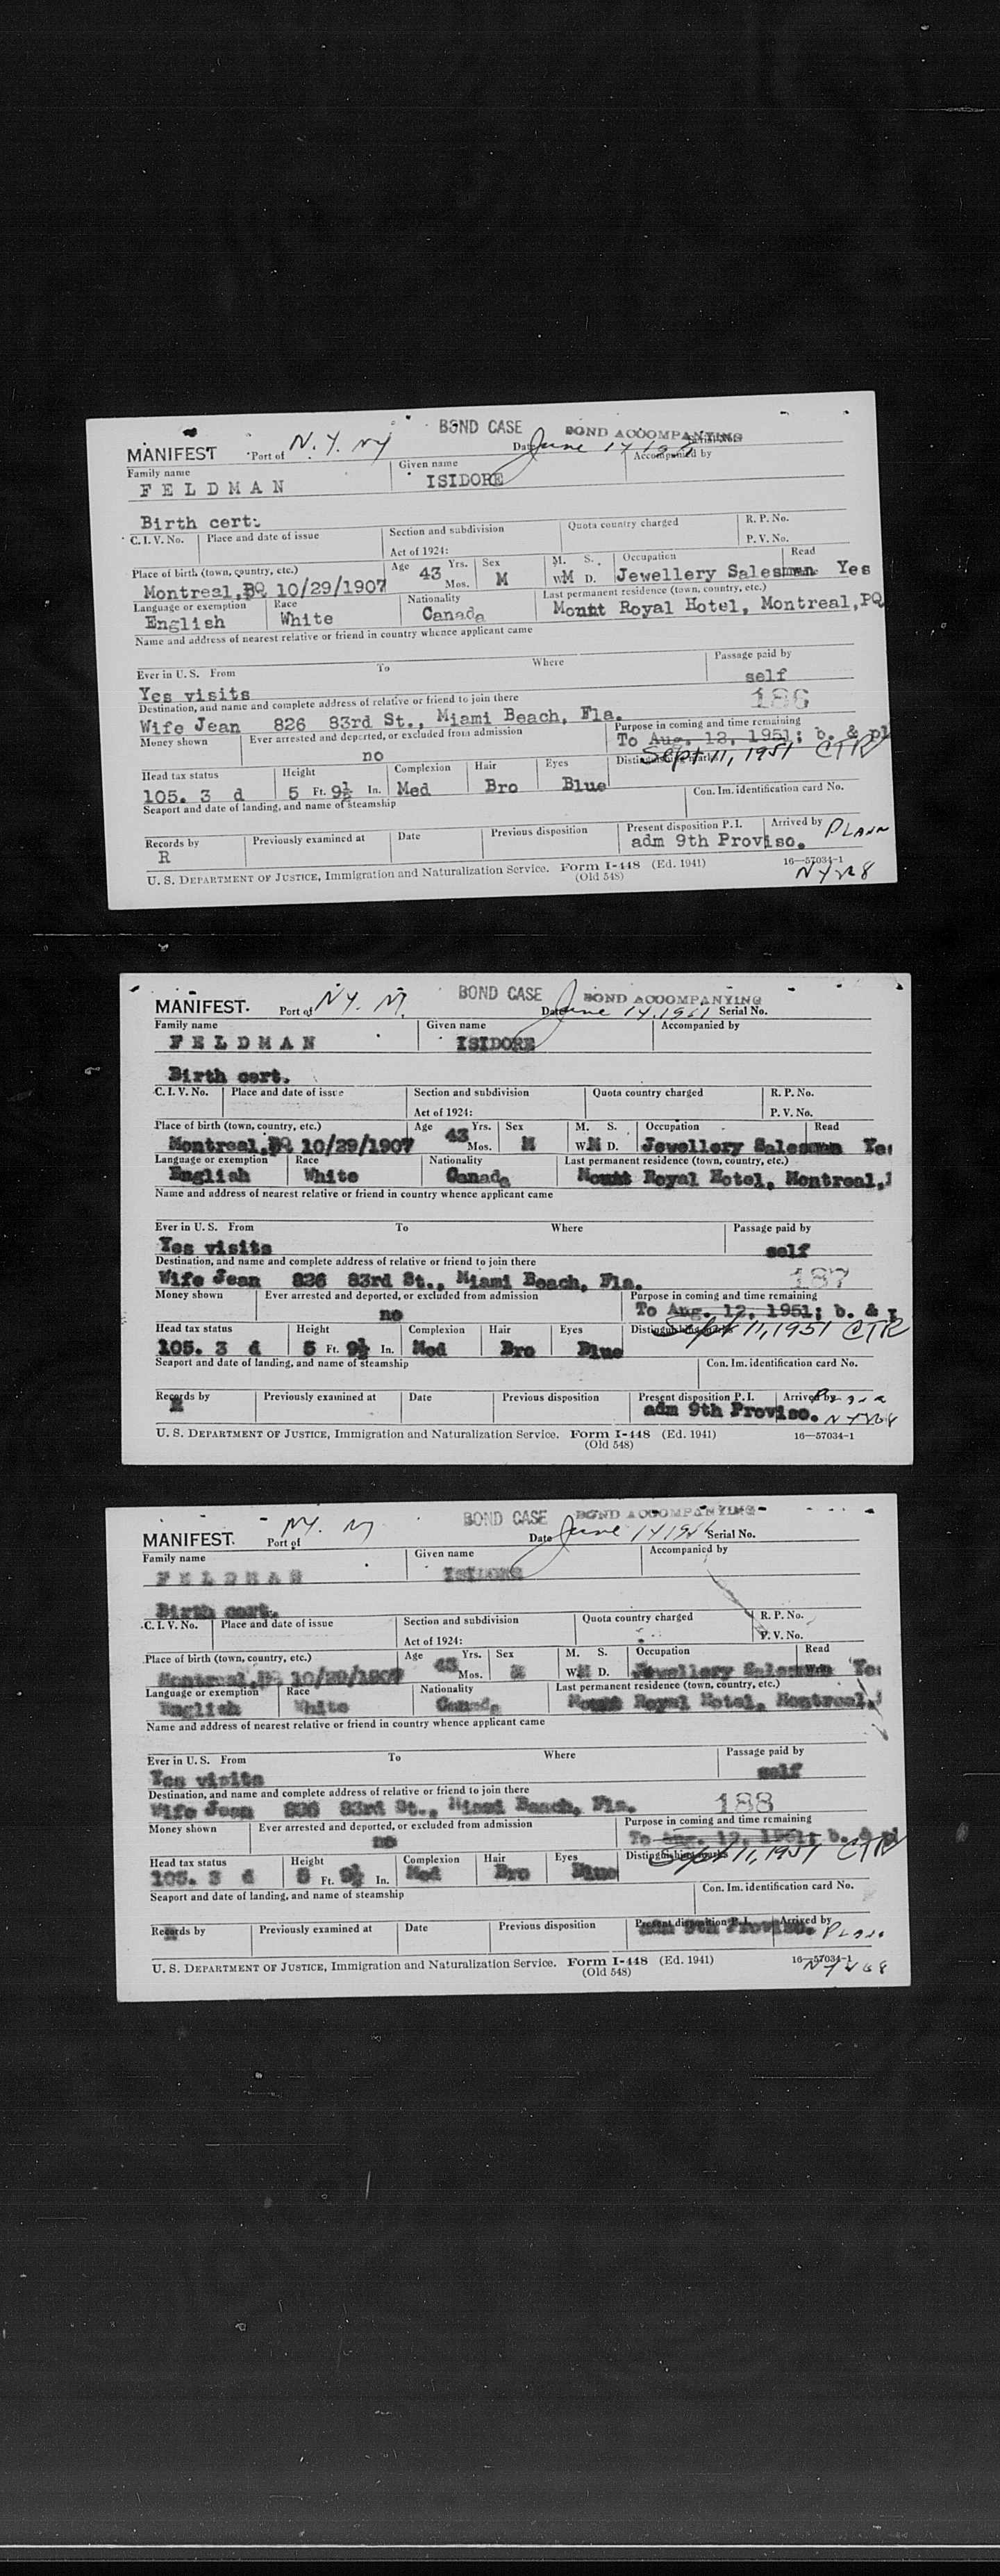 BOND CASE BOND ACCOMPANYING
MANIFEST Port of N.Y. NY Date June 14 1951
Family name Given name Accompanied by
FELDMAN ISIDORE
Birth cert.
C. I. V. No. Place and date of issue Section and subdivision Quota country charged R. P. No.
Act of 1924: P. V. No.
Place of birth (town, country, etc.) Age 43 Yrs. Mos. Sex M. S. W M D. Occupation Read
Montreal, PQ 10/29/1907 M Jewellery Salesman Yes
Language or exemption Race Nationality Last permanent residence (town, country, etc.)
English White Canada Mount Royal Hotel, Montreal,PQ
Name and address of nearest relative or friend in country whence applicant came
Ever in U. S. From To Where Passage paid by
Yes visits self
Destination, and name and complete address of relative or friend to join there 186
Wife Jean 826 83rd St., Miami Beach, Fla.
Money shown Ever arrested and deported, or excluded from admission Purpose in coming and time remaining
no To Aug. 12, 1951; b. & pl
Sept 11, 1951 CTR
Head tax status Height Complexion Hair Eyes Distinguishing marks
105. 3 d 5 Ft. 9½ In. Med Bro Blue
Seaport and date of landing, and name of steamship Con. Im. identification card No.
Records by Previously examined at Date Previous disposition Present disposition P. I. Arrived by
R adm 9th Proviso.
U. S. DEPARTMENT OF JUSTICE, Immigration and Naturalization Service. Form I-448 (Ed. 1941) 16—57034-1
(Old 548)
BOND CASE BOND ACCOMPANYING
MANIFEST. Port of N.Y. Date June 14, 1951 Serial No.
Family name Given name Accompanied by
FELDMAN ISIDORE
Birth cert.
C. I. V. No. Place and date of issue Section and subdivision Quota country charged R. P. No.
Act of 1924: P. V. No.
Place of birth (town, country, etc.) Age 43 Yrs. Mos. Sex M. S. W M D. Occupation Read
Montreal, PQ 10/29/1907 M Jewellery Salesman Yes
Language or exemption Race Nationality Last permanent residence (town, country, etc.)
English White Canada Mount Royal Hotel, Montreal,
Name and address of nearest relative or friend in country whence applicant came
Ever in U. S. From To Where Passage paid by
Yes visits self
Destination, and name and complete address of relative or friend to join there 187
Wife Jean 826 83rd St., Miami Beach, Fla.
Money shown Ever arrested and deported, or excluded from admission Purpose in coming and time remaining
no To Aug. 12, 1951; b. &
Sept 11, 1951 CTR
Head tax status Height Complexion Hair Eyes Distinguishing marks
105. 3 d 5 Ft. 9½ In. Med Bro Blue
Seaport and date of landing, and name of steamship Con. Im. identification card No.
Records by Previously examined at Date Previous disposition Present disposition P. I. Arrived by
R adm 9th Proviso.
U. S. DEPARTMENT OF JUSTICE, Immigration and Naturalization Service. Form I-448 (Ed. 1941) 16—57034-1
(Old 548)
BOND CASE BOND ACCOMPANYING
MANIFEST. Port of N.Y. Date June 14 1951 Serial No.
Family name Given name Accompanied by
FELDMAN ISIDORE
Birth cert.
C. I. V. No. Place and date of issue Section and subdivision Quota country charged R. P. No.
Act of 1924: P. V. No.
Place of birth (town, country, etc.) Age 43 Yrs. Mos. Sex M. S. W M D. Occupation Read
Montreal, PQ 10/29/1907 M Jewellery Salesman Yes
Language or exemption Race Nationality Last permanent residence (town, country, etc.)
English White Canada Mount Royal Hotel, Montreal,
Name and address of nearest relative or friend in country whence applicant came
Ever in U. S. From To Where Passage paid by
Yes visits self
Destination, and name and complete address of relative or friend to join there 188
Wife Jean 826 83rd St., Miami Beach, Fla.
Money shown Ever arrested and deported, or excluded from admission Purpose in coming and time remaining
no To Aug. 12, 1951; b. & pl
Sept 11, 1951 CTR
Head tax status Height Complexion Hair Eyes Distinguishing marks
105. 3 d 5 Ft. 9½ In. Med Bro Blue
Seaport and date of landing, and name of steamship Con. Im. identification card No.
Records by Previously examined at Date Previous disposition Present disposition P. I. Arrived by
adm 9th Proviso.
U. S. DEPARTMENT OF JUSTICE, Immigration and Naturalization Service. Form I-448 (Ed. 1941) 16—57034-1
(Old 548)